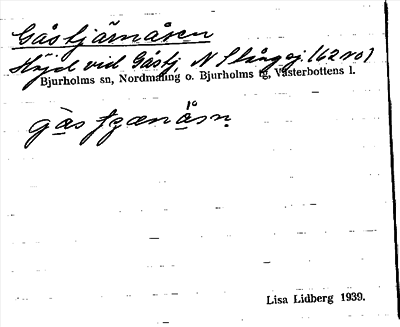 Gåstjärnåsen
Höjd vid Gåstj. N Slångaj. (62 no)
Bjurholms sn, Nordmaling o. Bjurholms tg, Västerbottens l.
Lisa Lidberg 1939.